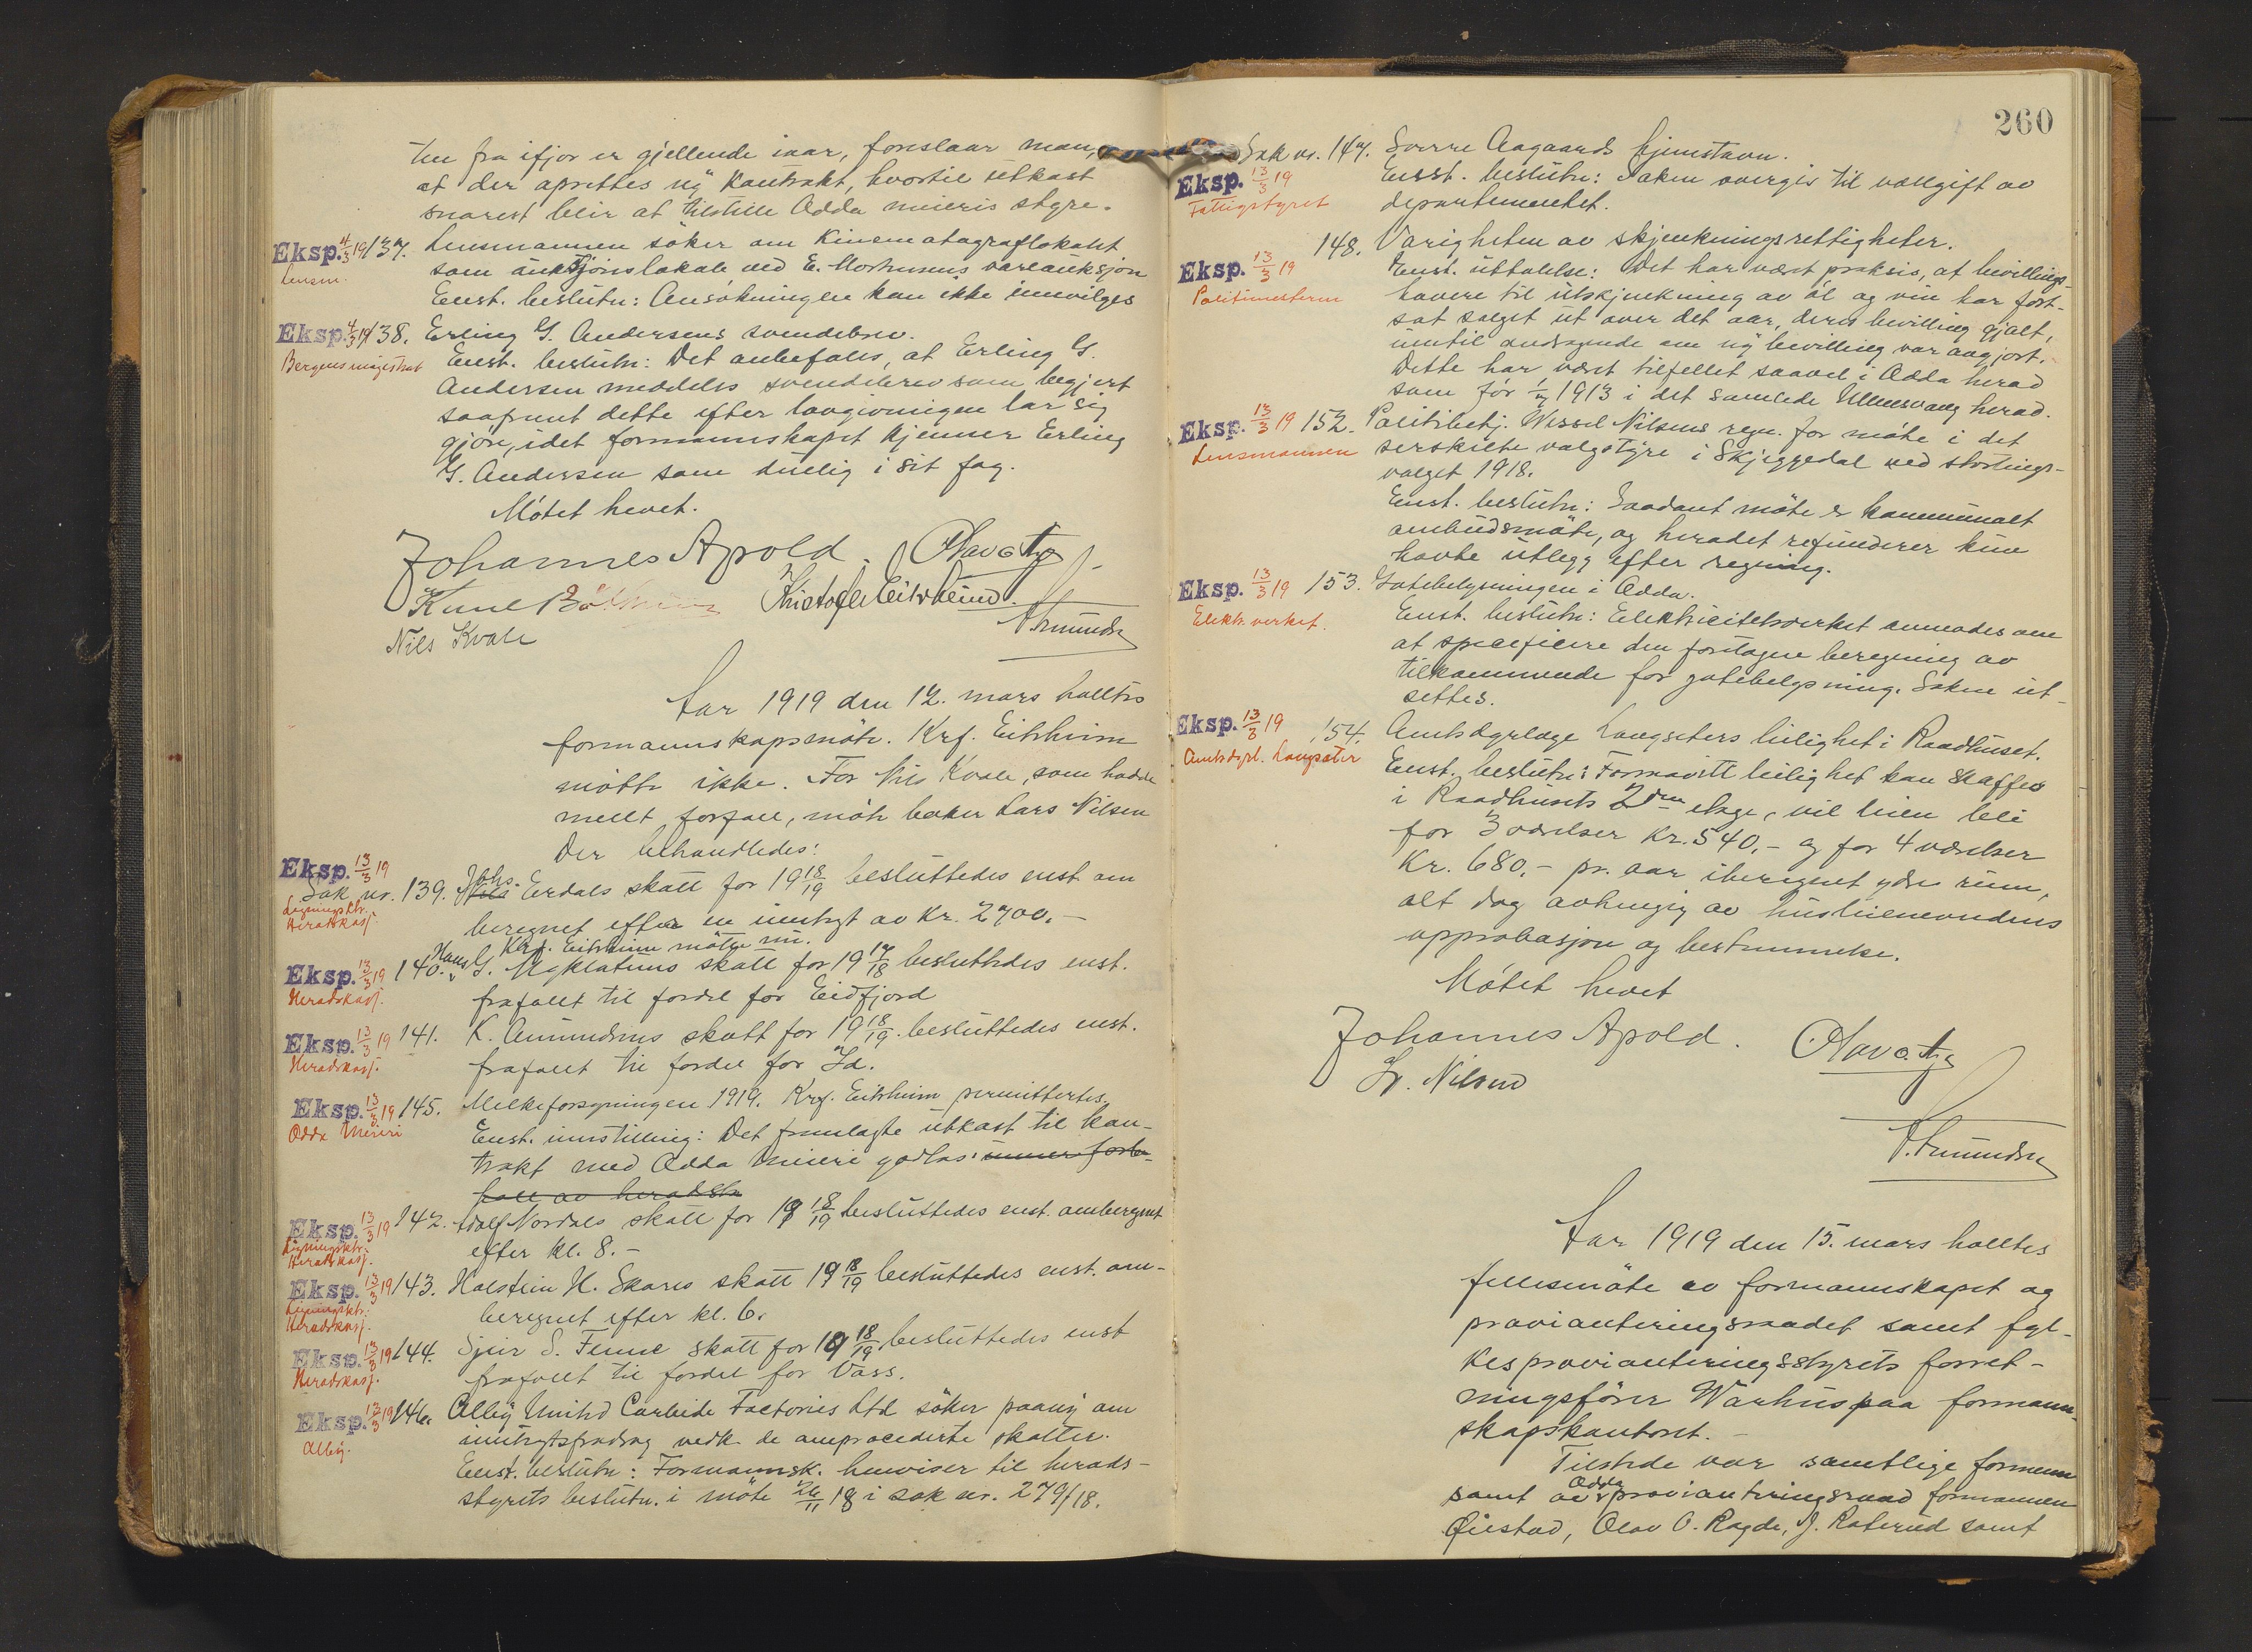 ten fra ifjor er gjellende iaar, foreslaar man,
at der oprettes ny kontrakt, hvortil utkast
snarest blir at tilstille Odda meieris styre.
Eksp. 4/3 19 137. Lensmannen söker om Kinematograflokalet
Lensm. som auksjonslokale ved E. Mortensens vareauksjon
Enst. beslutn: Ansökningen kan ikke innvilges
Eksp. 4/3 19 138. Erling G. Andersens svendebrev.
Bergens magistrat Enst. beslutn: Det anbefales, at Erling G.
Andersen meddeles svendebrev som begjert
saafremt dette efter lovgivningen lar sig
gjöre, idet formannskapet kjenner Erling
G. Andersen som duelig i sit fag.
Mötet hevet.
Johannes Apold. Olav
Kristofer Eitrheim.
Nils Kvale
Aar 1919 den 12. mars holltes
formannskapsmöte. Krf. Eitrheim
mötte ikke. For Nils Kvale, som hadde
mellt forfall, möter baker Lars Nilsen
Der behandledes:
Eksp. 13/3 19
Sak nr. 139. Johs. Erdals skatt for 19 18/19 besluttedes enst om
Ligningsktr. Heradskasj. beregnet efter en inntegt av Kr. 2700.-
Krf. Eitrheim mötte nu.
Eksp. 13/3 19 140. Hans G. Myklatuns skatt for 19 17/18 besluttedes enst.
Heradskasj. frafallt til fordel for Eidfjord
Eksp. 13/3 19 141. K. Amundsens skatt for 19 18/19 besluttedes enst.
Heradskasj. frafallt til fordel for Id.
Eksp. 13/3 19 145. Melkeforsyningen 1919. Krf. Eitrheim permittertes.
Odda Meieri Enst. innstilling: Det fremlagte utkast til kon-
trakt med Odda meieri godtas. unner forbe-
hall av heradstr
Eksp. 13/3 19 142. Adolf Nordals skatt for 19 18/19 besluttedes enst. omberegnet
Ligningsktr. Heradskasj. efter kl. 8.-
Eksp. 13/3 19 143. Halstein H. Skares skatt 19 18/19 besluttedes enst. om-
Ligningsktr. Heradskasj. beregnet efter kl. 6.
Eksp. 13/3 19 144. Sjur S. Fenne skatt for 19 18/19 besluttedes enst
Heradskasj. frafallt til fordel for Vass.
Eksp. 13/3 19 146. Alby United Carbide Factories Ltd söker paany om
Alby. inntegtsfradrag vedk. de omprocederte skatter.
Enst. beslutn: Formannsk. henviser til herads-
styrets beslutn. i möte 26/11 18 i sak nr. 279/18.
260
Sak nr. 147. Sverre Aagaards hjemstavn.
Eksp. 13/3 19 Enst. beslutn: Saken overgis til vollgift av
Fattigstyret departementet.
148. Varigheten av skjenkningsrettigheter.
Eksp. 13/3 19 Enst. uttalelse: Det har vært praksis, at bevillings-
Politimesteren havere til utskjenkning av öl og vin har fort-
sat salget ut over det aar, deres bevilling gjalt,
inntil andragende om ny bevilling var avgjort.
Dette har vært tilfellet saavel i Odda herad
som för 1/7 1913 i det samlede Ullensvang herad.
Eksp. 13/3 19 152. Politibetj. Wessel Nilsens regn. for möte i det
Lensmannen serskilte valgstyre i Skjeggedal ved stortings-
valget 1918.
Enst. beslutn: Saadant möte er kommunalt
ombudsmöte, og heradet refunderer kun
havte utlegg efter regning.
Eksp. 13/3 19 153. Gatebelysningen i Odda.
Elektr. verket. Enst. beslutn: Elektricitetsverket anmodes om
at specificere den foretagne beregning av
tilkommende for gatebelysning. Saken ut-
settes.
Eksp. 13/3 19 154. Amtsdyrlæge Langseters leilighet i Raadhuset.
Amtsdyrl. Langseter Enst. beslutn: Forsaavitt leilighet kan skaffes
i Raadhusets 2den etage, vil leien bli
for 3 værelser kr. 540.- og for 4 værelser
kr. 680.- pr. aar iberegnet ydre rum,
alt dog avhengig av husleienevndens
approbasjon og bestemmelse.
Mötet hevet
Johannes Apold. Olav
Lr. Nilsen
Aar 1919 den 15. mars holltes
fellesmöte av formannskapet og
provianteringsraadet samt fyl-
kesprovianteringsstyrets forret-
ningsförer Warhus paa formann-
skapskontoret.-
Tilstede var samtlige formenn
samt av Odda provianteringsraad formannen
Öiestad, Olav O. Ragde, J. Raterud samt